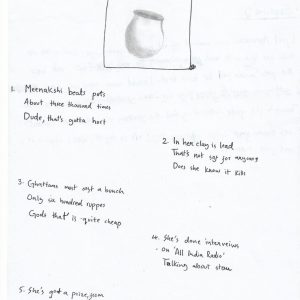 1. Meenakshi beats pots
About three thousand times
Dude, that's gotta hurt
2. In her clay is lead
That's not for anyone
Does she know it kills
3. Ghattams must cost a bunch
Only six hundred rupees
Gods that is quite cheap
4. She's done interveiws
on 'All India Radio'
Talking about stew
5. She's got a prize,